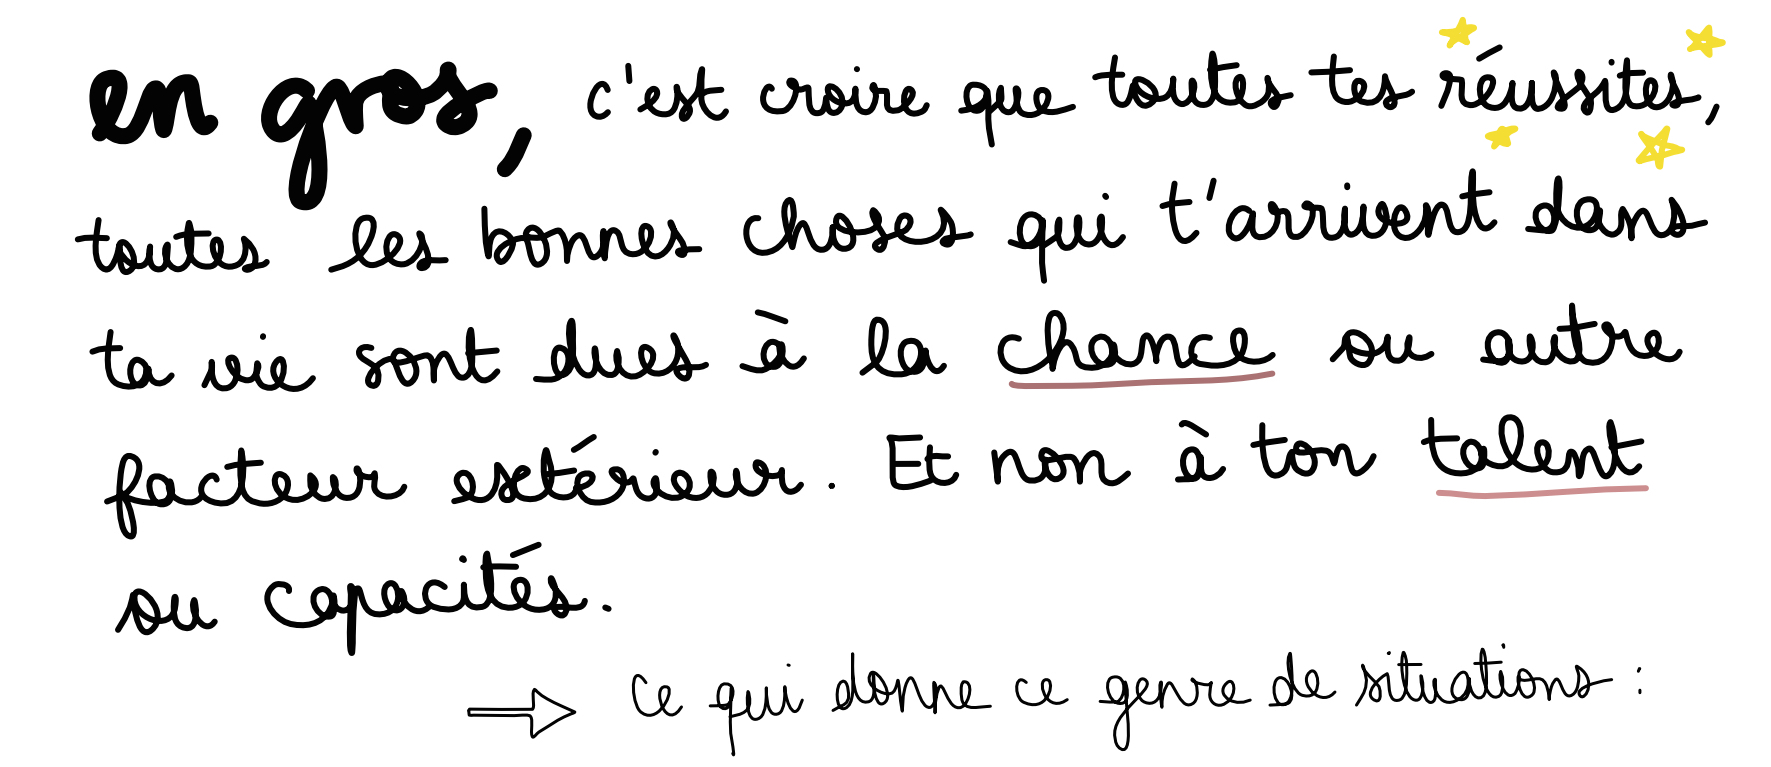 en gros, c'est croire que toutes tes réussites,
toutes les bonnes choses qui t'arrivent dans
ta vie sont dues à la chance ou autre
facteur extérieur. Et non à ton talent
ou capacités.
ce qui donne ce genre de situations :